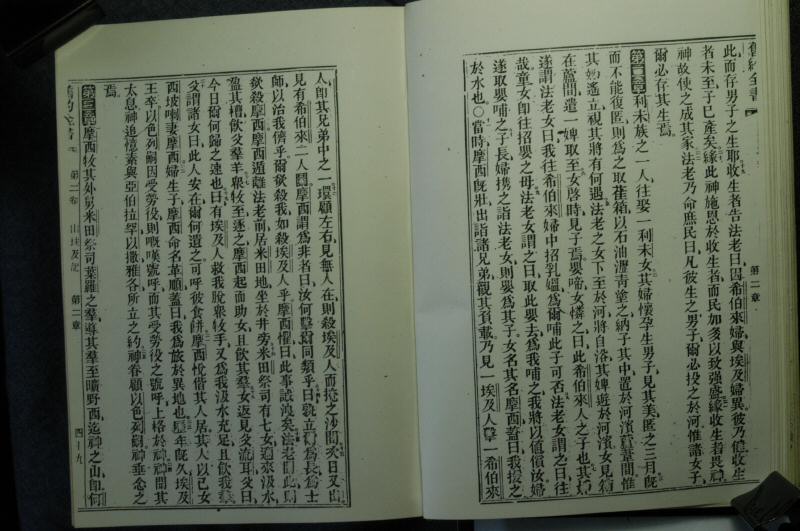 舊約全書
第二章
此而存男子之生耶收生者告法老曰因希伯來婦與埃及婦異彼乃健收生
者未至子已產矣緣此神施恩於收生者而民加多以致强盛緣收生者畏
神故使之成其家法老乃命庶民曰凡彼生之男子爾必投之於河惟諸女子
爾必存其生焉
第二章利未族之一人往娶一利未女其婦懷孕生男子見其美匿之三月旣
而不能復匿則爲之取萑箱以石油瀝靑塗之納子其中置於河濱葦間惟
其姊遙立視其將有何遇法老之女下至於河將自洛其婢遊於河濱女見箱
在蘆間遣一婢取至女啓時見子焉嬰啼女憐之曰此希伯來人之子也其姊
遂謂法老女曰我往希伯來婦中招乳媼爲爾哺此子可否法老女謂之曰往
哉童女卽往招嬰之母法老女謂之曰取此嬰去爲我哺之我將以値償汝婦
遂取嬰哺之子長婦携之詣法老女則嬰爲其子女名其名摩西蓋曰我援之
於水也○當時摩西旣壯出詣諸兄弟觀其負載乃見一埃及人擊一希伯來
人卽其兄弟中之一環顧左右見無人在則殺埃及人而掩之沙間次日又出
見有希伯來二人鬪摩西謂爲非者曰汝何擊爾同類乎曰孰立爾爲長爲士
師以治我儕乎爾欲殺我如殺埃及人乎摩西懼曰此事誠洩矣法老聞此則
欲殺摩西摩西遁離法老前居米田地坐於井旁米田祭司有七女適來汲水
盈其槽飮父羣羊羣牧至逐之摩西起而助女且飮其羣女返見父流耳父曰
今日爾何歸之速也曰有埃及人救我脫羣牧手又爲我汲水充足且飮我羣
父謂諸女曰此人安在爾何遺之可呼彼食餅摩西悅偕其人居其人以己女
西坡喇妻摩西婦生子摩西命名革順蓋曰我爲旅於異地也歷年旣久埃及
王卒以色列嗣因受勞役則嘅嘆號呼而其受勞役之號呼上格於神神聞其
太息神追憶素與亞伯拉罕以撒雅各所立之約神眷顧以色列嗣神垂念之
焉
第三章摩西牧其外舅米田祭司葉羅之羣導其羣至曠野西迄神之山卽何
舊約全書
第二卷
出埃及記
第二章
四十九